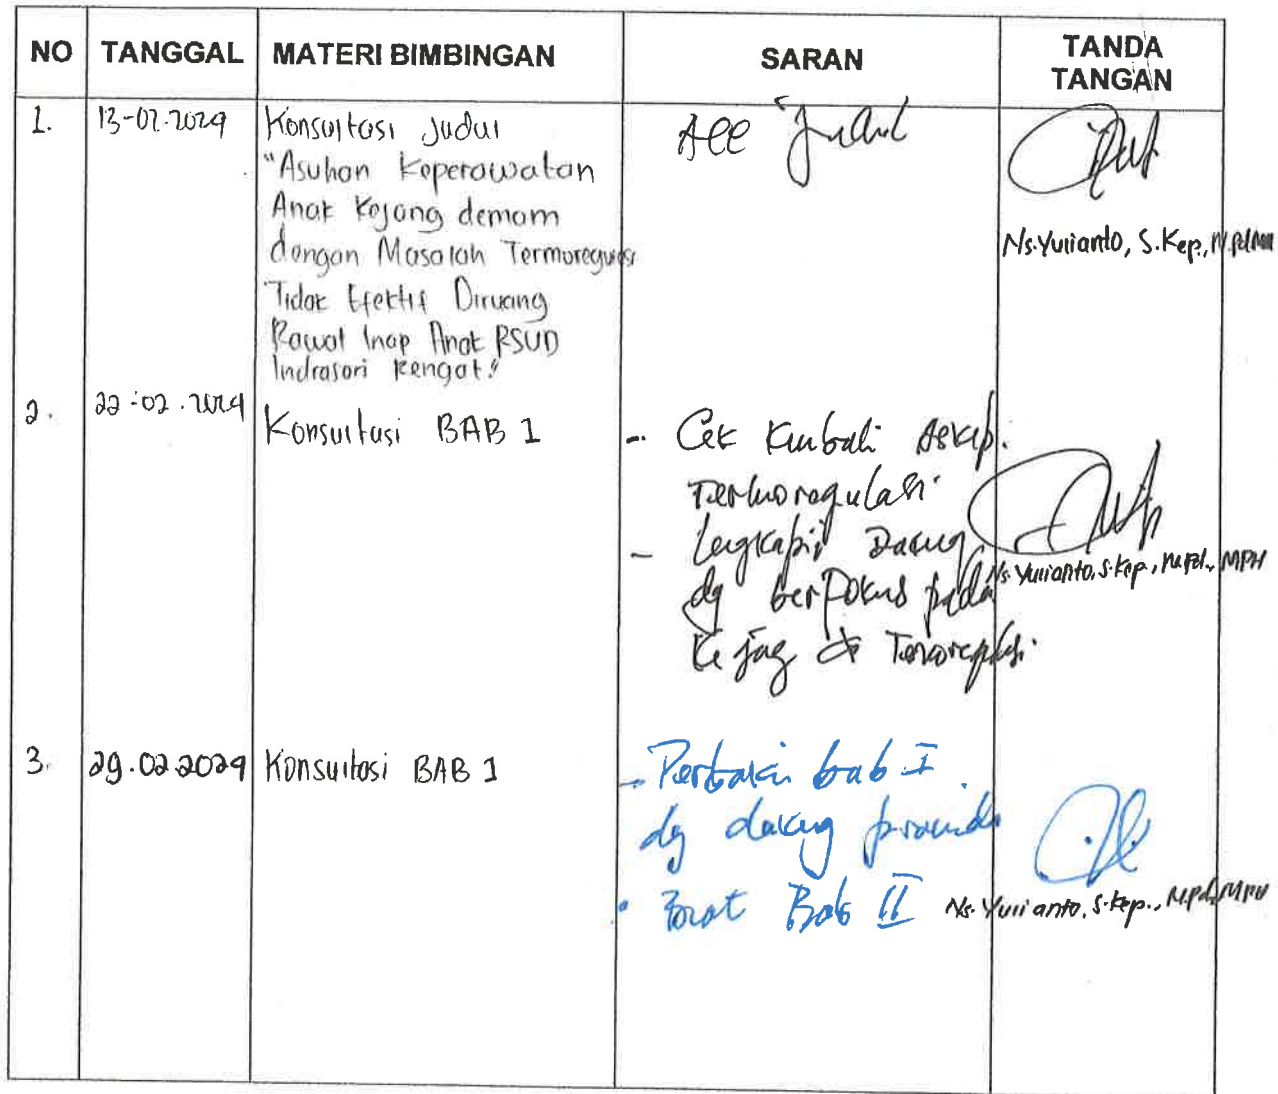 NO TANGGAL MATERI BIMBINGAN SARAN TANDA TANGAN
1. 13-02-2024 Konsultasi Judul
"Asuhan Keperawatan
Anak Kejang demam
dengan Masalah Termoregulasi
Tidak Efektif Diruang
Rawat Inap Anak RSUD
Indrasari Rengat."
Acc Judul
Ns.Yulianto, S.Kep.,
2. 22-02-2024 Konsultasi BAB 1
- Cek Kembali Askep.
Termoregulasi
- Lengkapi
dg berfokus pada
Kejag
Ns. Yulianto, S.Kep., M.Pd., MPH
3. 29.02.2024 Konsultasi BAB 1
- Perbaiki bab I
dg
Buat Bab II
Ns. Yulianto, S.Kep., M.Pd., MPH